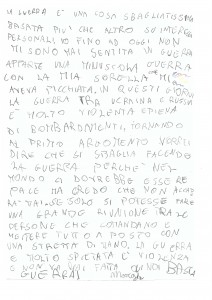 LA GUERRA E' UNA COSA SBAGLIATA
BASATA PIU' CHE ALTRO SU INTERESSI
PERSONALI IO FINO AD OGGI NON
MI SONO MAI SENTITA IN GUERRA
APPARTE UNA MINUSCOLA GUERRA
CON LA MIA SORELLA CHE MI
AVEVA PICCHIATA, IN QUESTI GIORNI
LA GUERRA TRA UCRAINA E RUSSIA
E' MOLTO VIOLENTA E PIENA
DI BOMBARDAMENTI, TORNANDO
AL PRIMO ARGOMENTO VORREI
DIRE CHE SI SBAGLIA FACENDO
LA GUERRA PERCHE' NEL
MONDO CI DOVREBBE ESSERE
PACE MA CREDO CHE NON ACCADRA
MAI SE SOLO SI POTESSE FARE
UNA GRANDE RIUNIONE TRA LE
PERSONE CHE COMANDANO E
METTERE TUTTO A POSTO CON
UNA STRETTA DI MANO, LA GUERRA
E' MOLTO SPIETATA C'E' VIOLENZA
E NON VA FATTA QUINDI BASTA
GUERRA